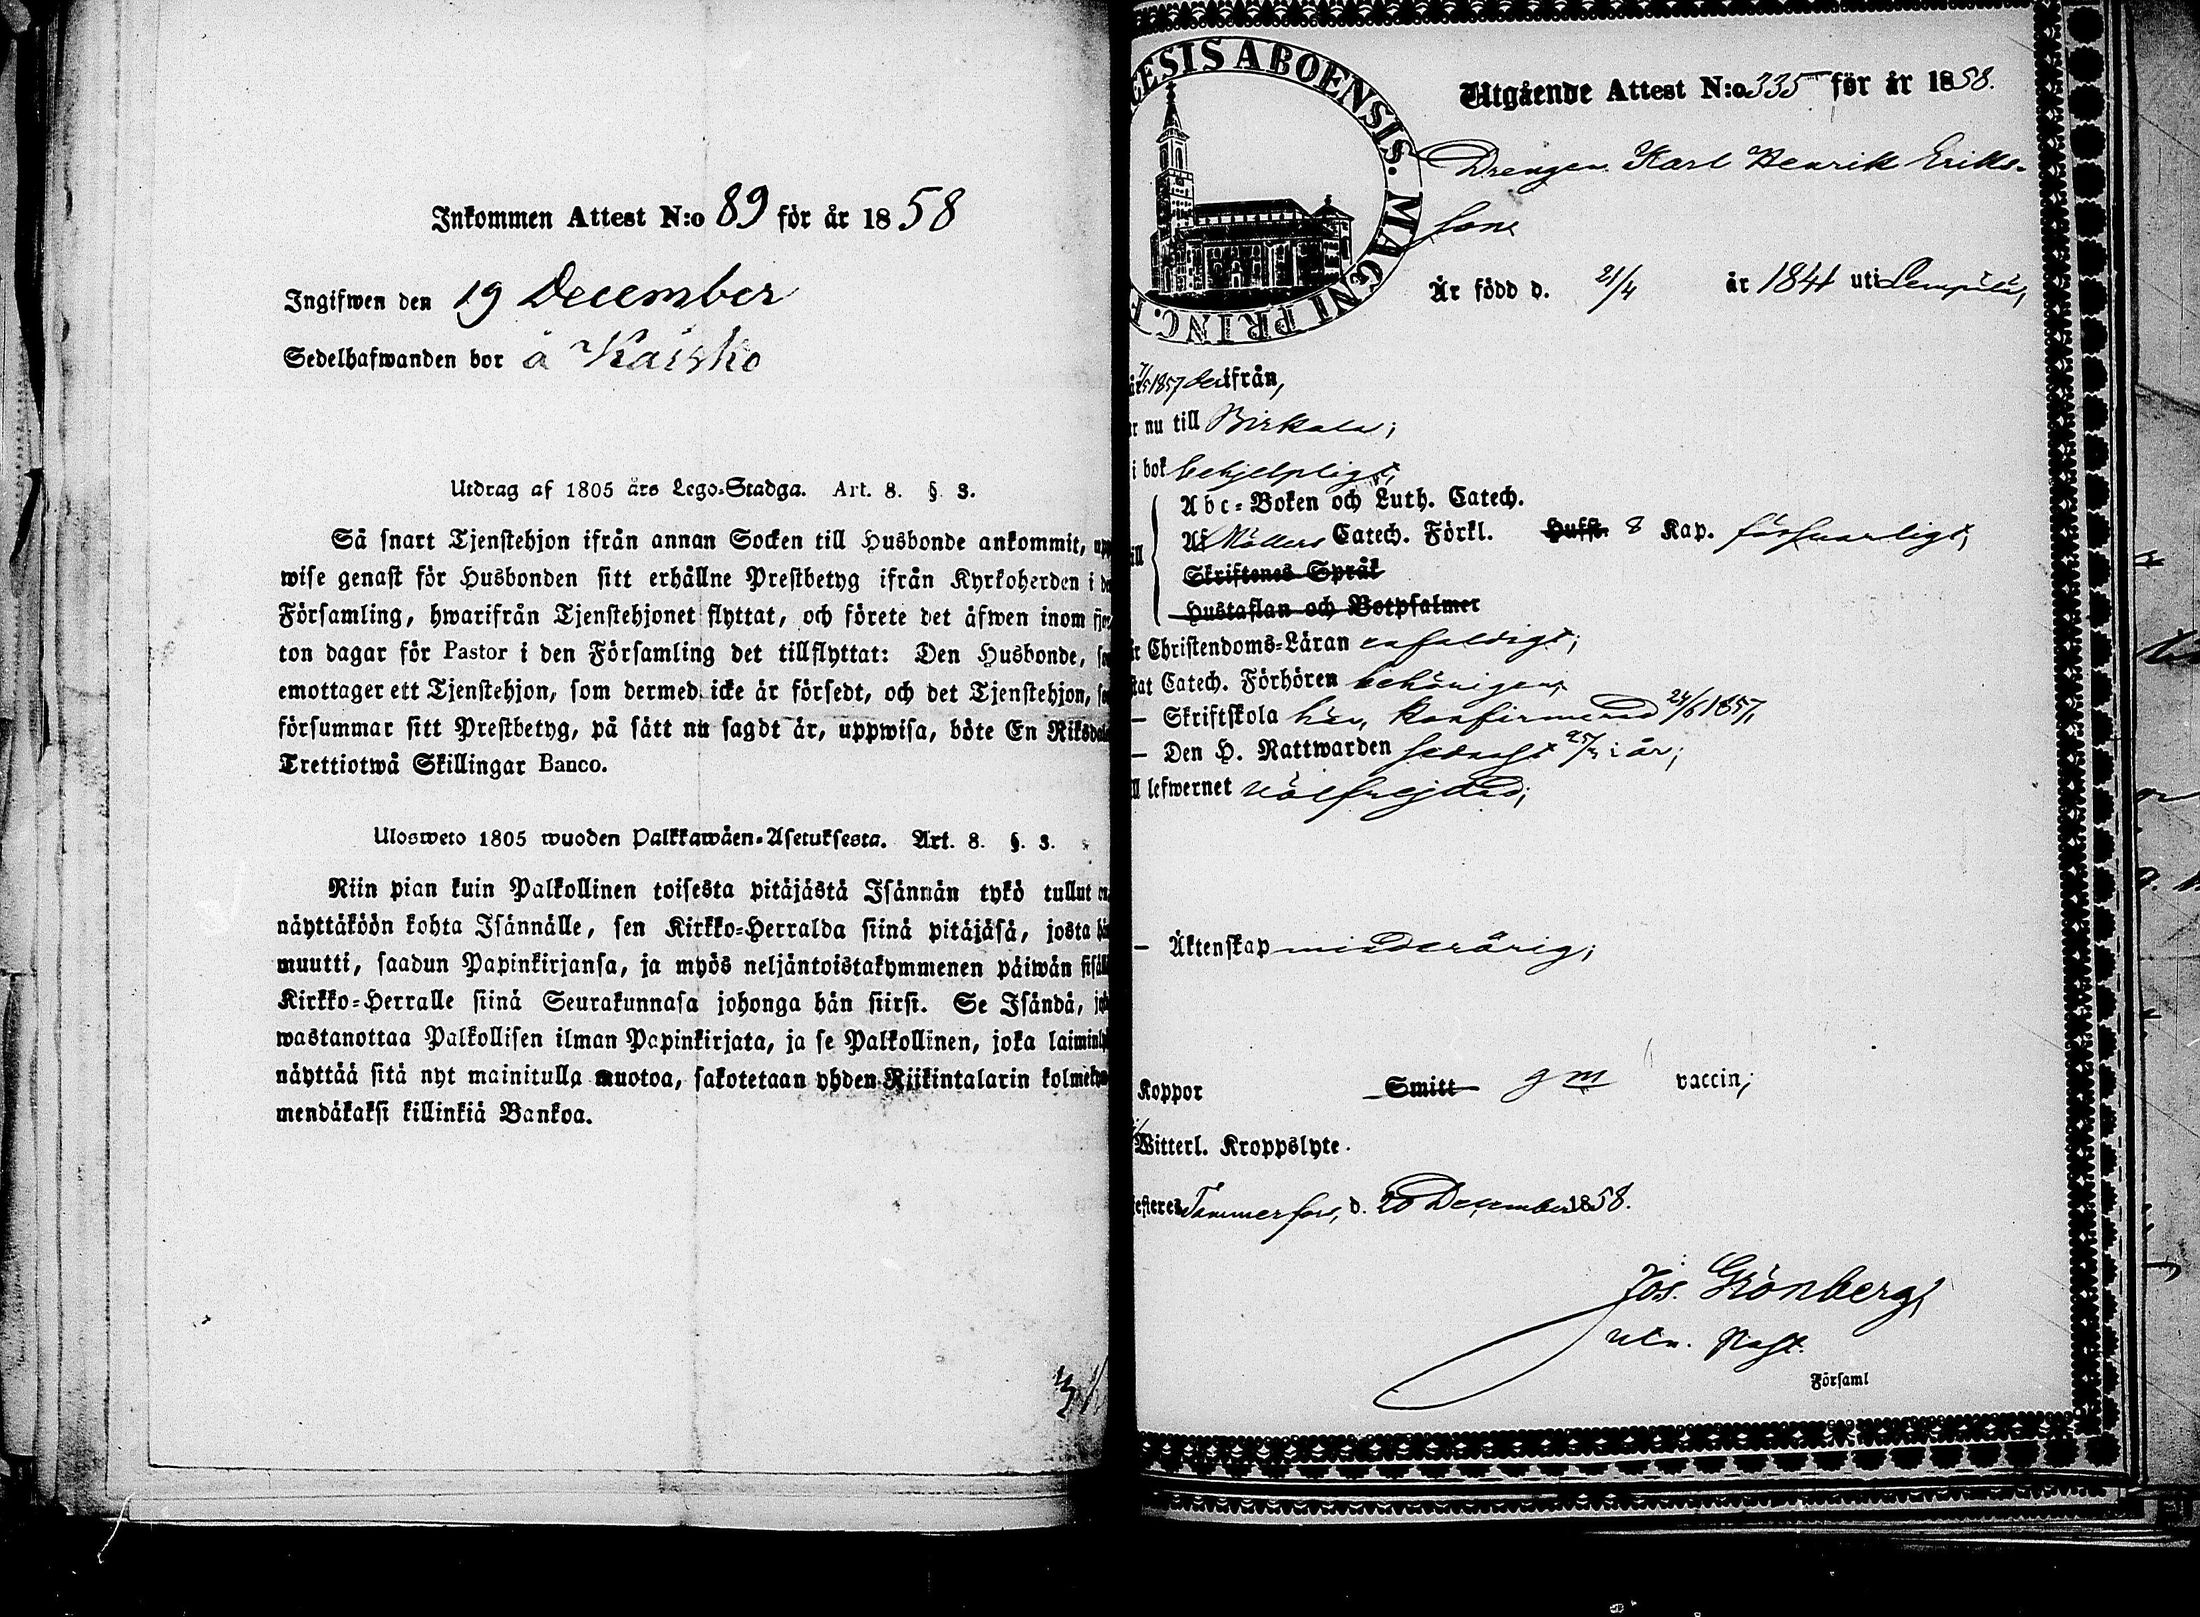 Inkommen Attest N:o 89 för år 1858
Ingifwen den 19 December
Sedelhafwanden bor å Kaisko
Utdrag af 1805 års Lego-Stadga. Art. 8. §. 3.
Så snart Tjenstehjon ifrån annan Socken till Husbonde ankommit, upp
wise genast för Husbonden sitt erhållne Prestbetyg ifrån Kyrkoherden i de
Församling, hwarifrån Tjenstehjonet flyttat, och förete det äfwen inom fjor
ton dagar för Pastor i den Församling det tillflyttat: Den Husbonde, so
emottager ett Tjenstehjon, som dermed icke är försedt, och det Tjenstehjon, so
försummar sitt Prestbetyg, på sätt nu sagdt är, uppwisa, böte En Riksdale
Trettiotwå Skillingar Banco.
Ulosweto 1805 wuoden Palkkawäen-Asetuksesta. Art. 8. §. 3.
Niin pian kuin Palkollinen toisesta pitäjästä Isännän tykö tullut on
näyttäköön kohta Isännälle, sen Kirkko-Herralda siinä pitäjäsä, josta hän
muutti, saadun Papinkirjansa, ja myös neljäntoistakymmenen päiwän sisäll
Kirkko-Herralle siinä Seurakunnasa johonga hän siirsi. Se Isändä, jok
wastanottaa Palkollisen ilman Papinkirjata, ja se Palkollinen, joka laiminly
näyttää sitä nyt mainitulla muotoa, sakotetaan yhden Riikintalarin kolmeky
mendäkaksi killinkiä Bankoa.
ESIS ABOENSIS. MAGNI PRINC. F
Utgående Attest N:o 335 för år 1858.
Drengen Karl Henrik Eriks-
son
Är född d. 21/4 år 1841 uti Lempälä,
1857 derifrån,
r nu till Birkala;
i bok behjelpligt,
Abc-Boken och Luth. Catech.
Af Möllers Catech. Förkl. Hufst. 8 Kap. försvarligt;
ill
Skriftenes Språk
Hustaflan och Botpsalmer
r Christendoms-Läran enfaldigt;
tat Catech. Förhören behörigen,
– Skriftskola här, konfirmerad 24/6 1857,
– Den H. Nattwarden i år;
ll lefwernet välfrejdad;
– Äktenskap minderårig;
Koppor Smitt gm vaccin;
Witterl. Kroppslyte.
esteres Tammerfors, d. 20 December 1858.
Jos. Grönberg,
Past.
Församl